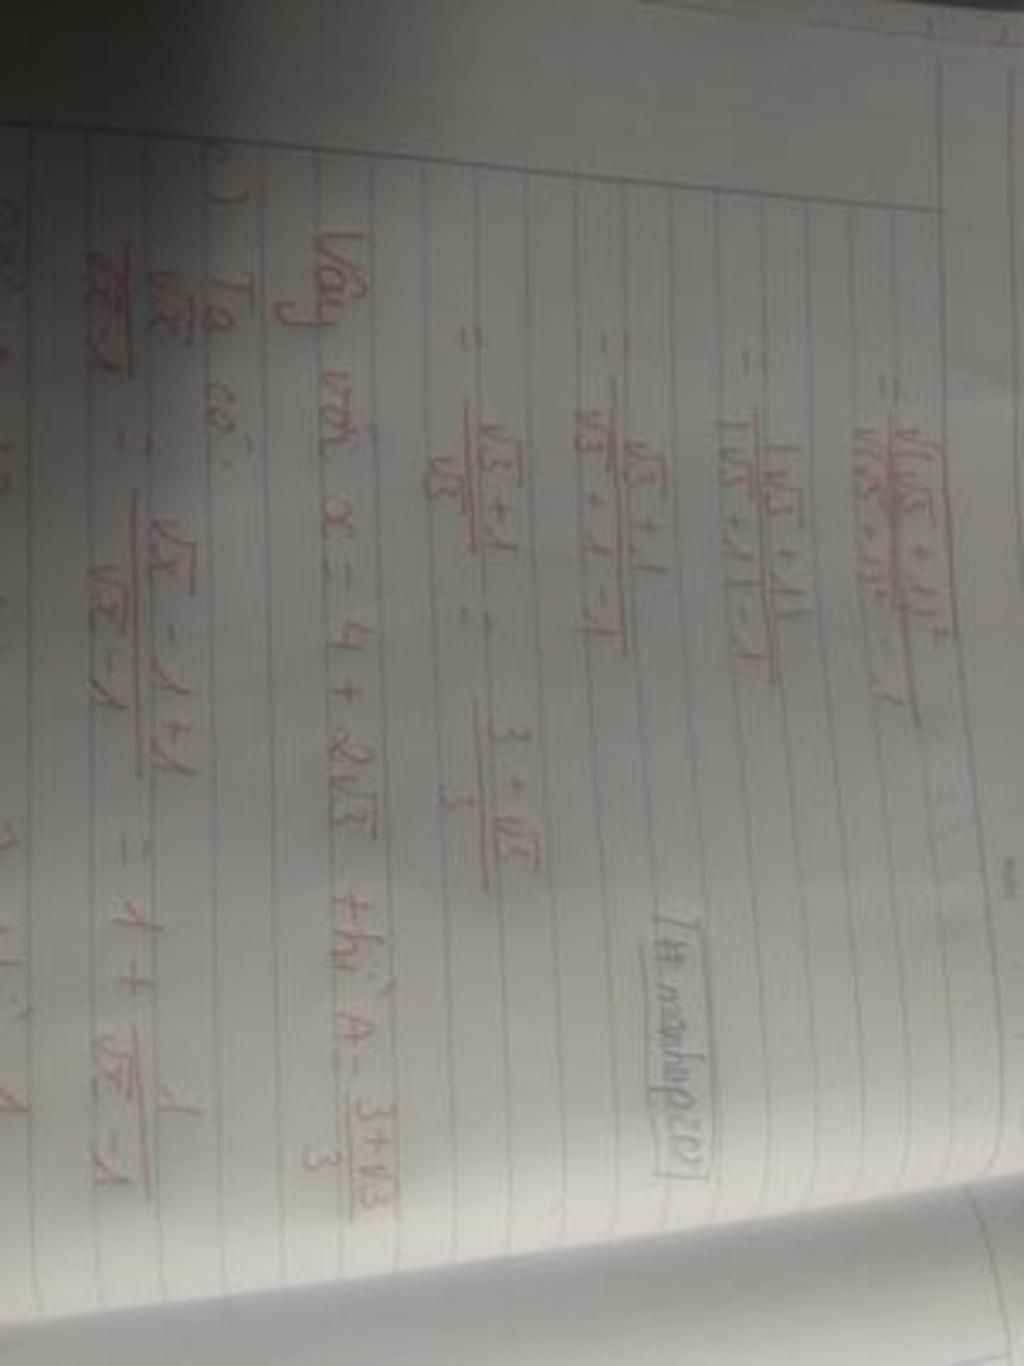 = √(√3 + 1)² / √(√3 + 1)² - 1
= |√3 + 1| / |√3 + 1| - 1
= √3 + 1 / √3 + 1 - 1
= √3 + 1 / √3 = 3 + √3 / 3
Vậy với x = 4 + 2√3 thì A = 3 + √3 / 3
) Ta có:
√x / √x - 1 = √x - 1 + 1 / √x - 1 = 1 + 1 / √x - 1